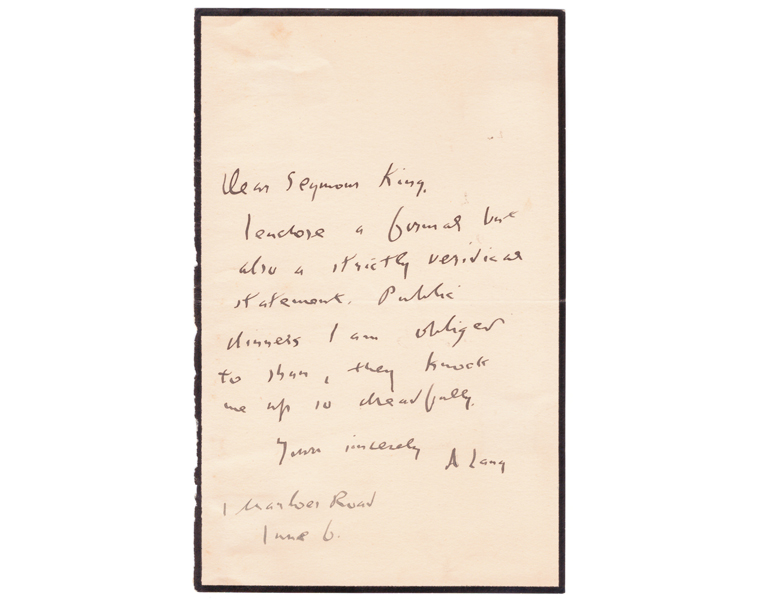 Dear Seymour King,
I enclose a formal but
also a strictly veridical
statement. Public
dinners I am obliged
to shun, they knock
me up so dreadfully.
Yours sincerely
A Lang
1 Marloes Road
June 6.